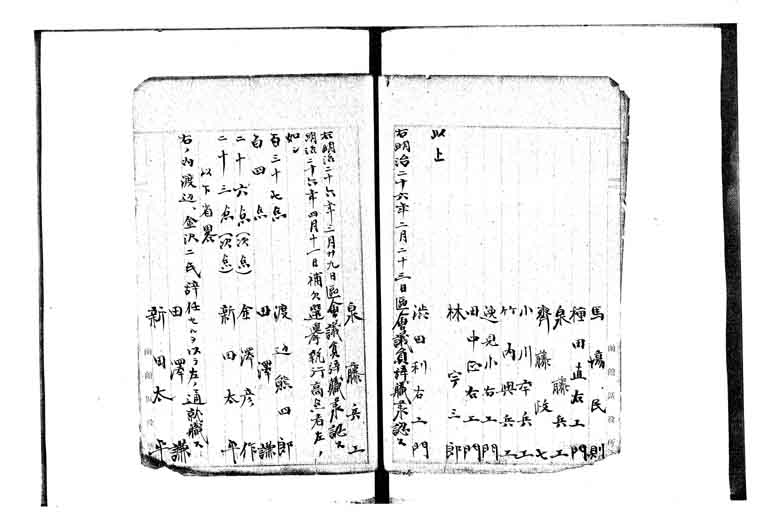 馬場民則
種田直右エ門
泉藤兵エ
齊藤啓七
小川幸兵エ
竹内與兵エ
逸見小右エ門
田中正右エ門
林宇三郎
以上
渋田利右エ門
右明治二十六年二月二十三日区会議員辞職承認ス
泉藤兵エ
右明治二十六年三月廿九日区会議員辞職承認ス
明治二十六年四月十一日補欠選挙執行高点者左ノ
如シ
百三十七点 渡辺熊四郎
百四点 田澤謙
二十六点(次点) 金澤彦作
二十三点(次点) 新田太平
以下省畧
右ノ内渡辺、金沢二氏辞任セルヲ以テ左ノ通就職ス
田澤謙
新田太平
函館区役所
函館区役所